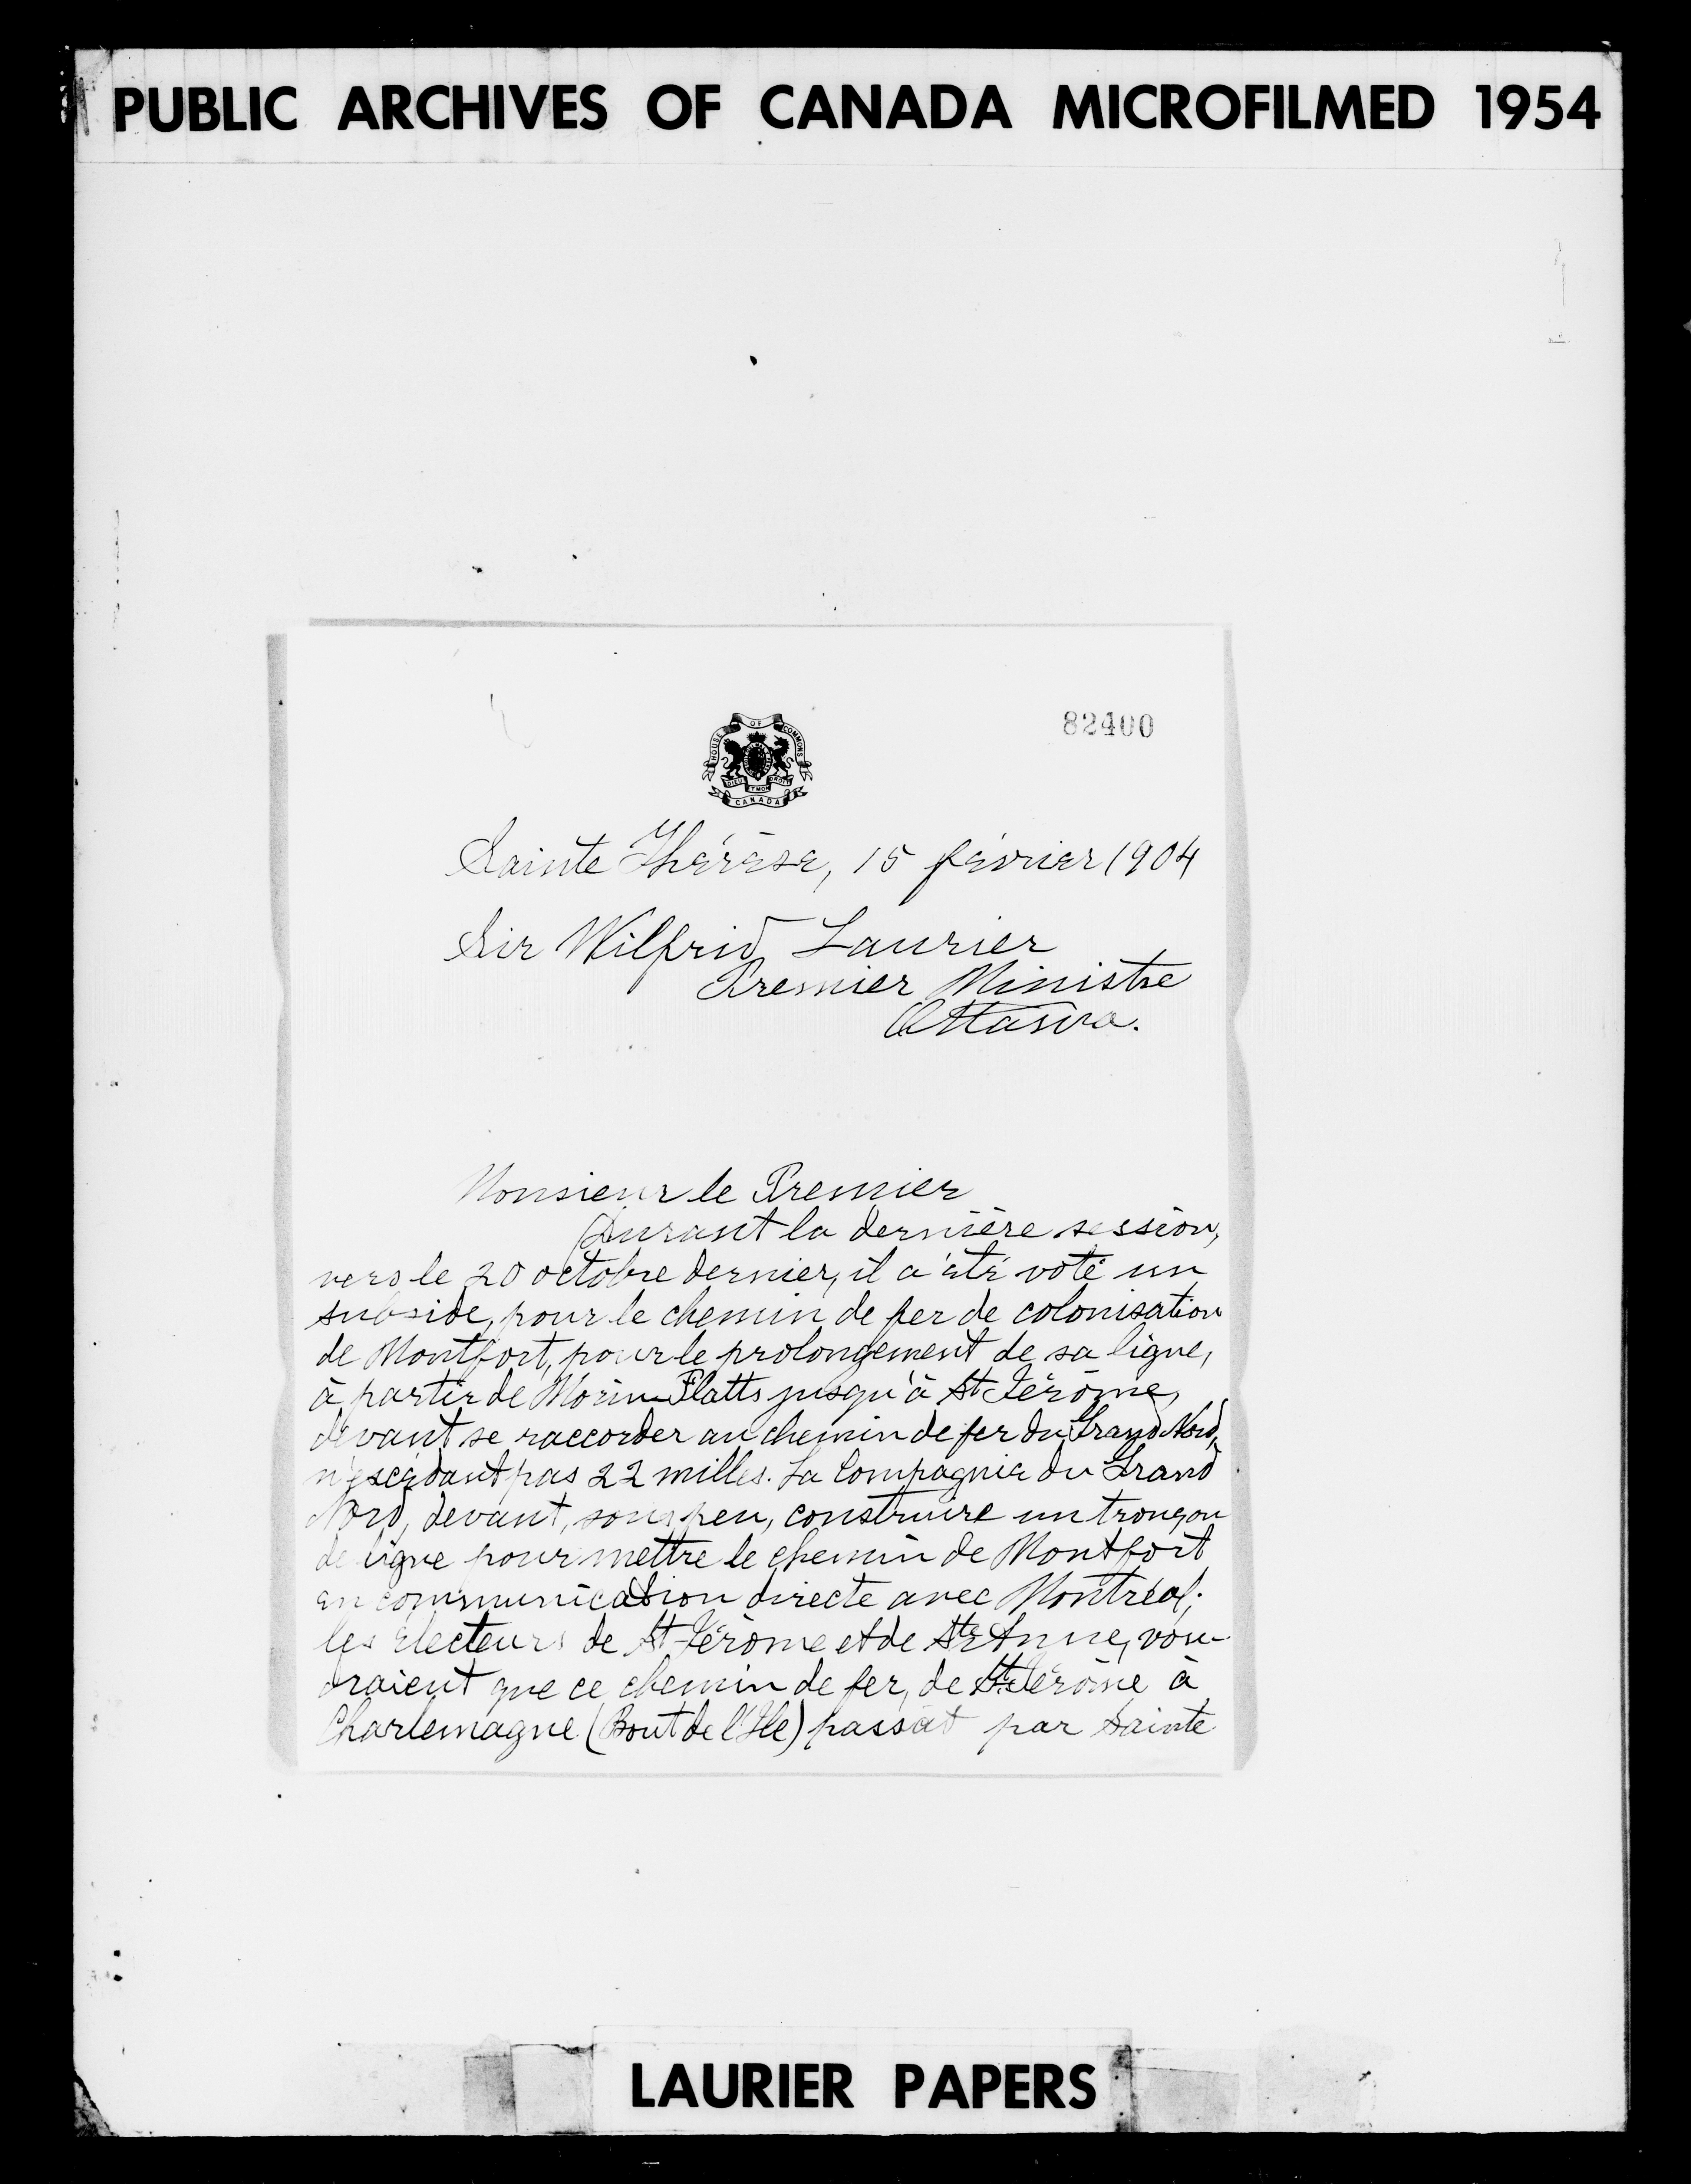 PUBLIC ARCHIVES OF CANADA MICROFILMED 1954
82400
HOUSE OF COMMONS
DIEU ET MON DROIT
CANADA
Sainte Thérèse, 15 février 1904
Sir Wilfrid Laurier
Premier Ministre
Ottawa.
Monsieur le Premier
Durant la dernière session,
vers le 20 octobre dernier, il a été voté un
subside, pour le chemin de fer de colonisation
de Montfort, pour le prolongement de sa ligne,
à partir de Morin Flatts jusqu'à St Jérôme,
devant se raccorder au chemin de fer du Grand Nord,
n'excédant pas 22 milles. La Compagnie du Grand
Nord, devant, sous peu, construire un tronçon
de ligne pour mettre le chemin de Montfort
en communication directe avec Montréal;
les électeurs de St Jérôme et de Ste Anne, vou-
draient que ce chemin de fer, de St. Jérôme à
Charlemagne (Bout de l'Ile) passât par Sainte
LAURIER PAPERS